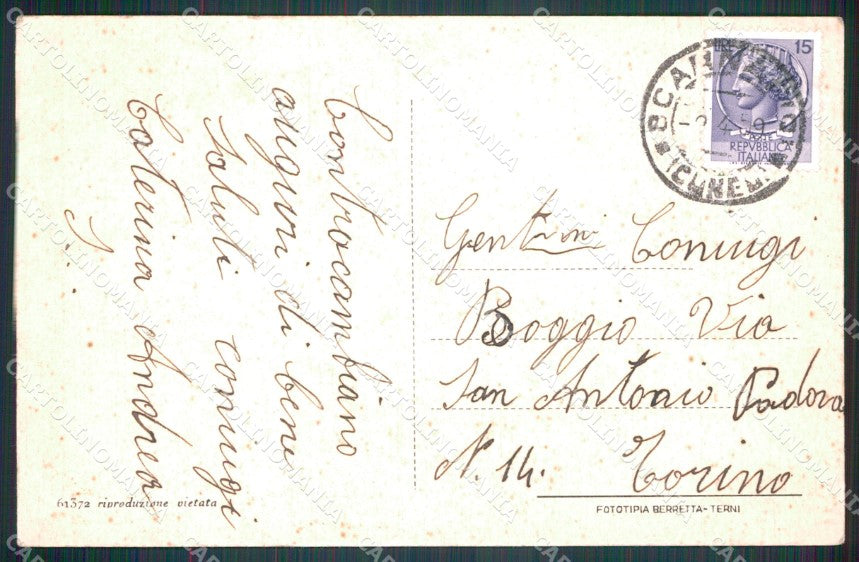 Controcambiano
auguri di bene
saluti coniugi
Caterina Andrea
LIRE 15
REPVBBLICA
ITALIANA
(CUNEO)
Gent.mi Coniugi
Boggio Via
San Antonio Padova
N. 14. Torino
61372 riproduzione vietata
FOTOTIPIA BERRETTA - TERNI
CARTOLINOMANIA